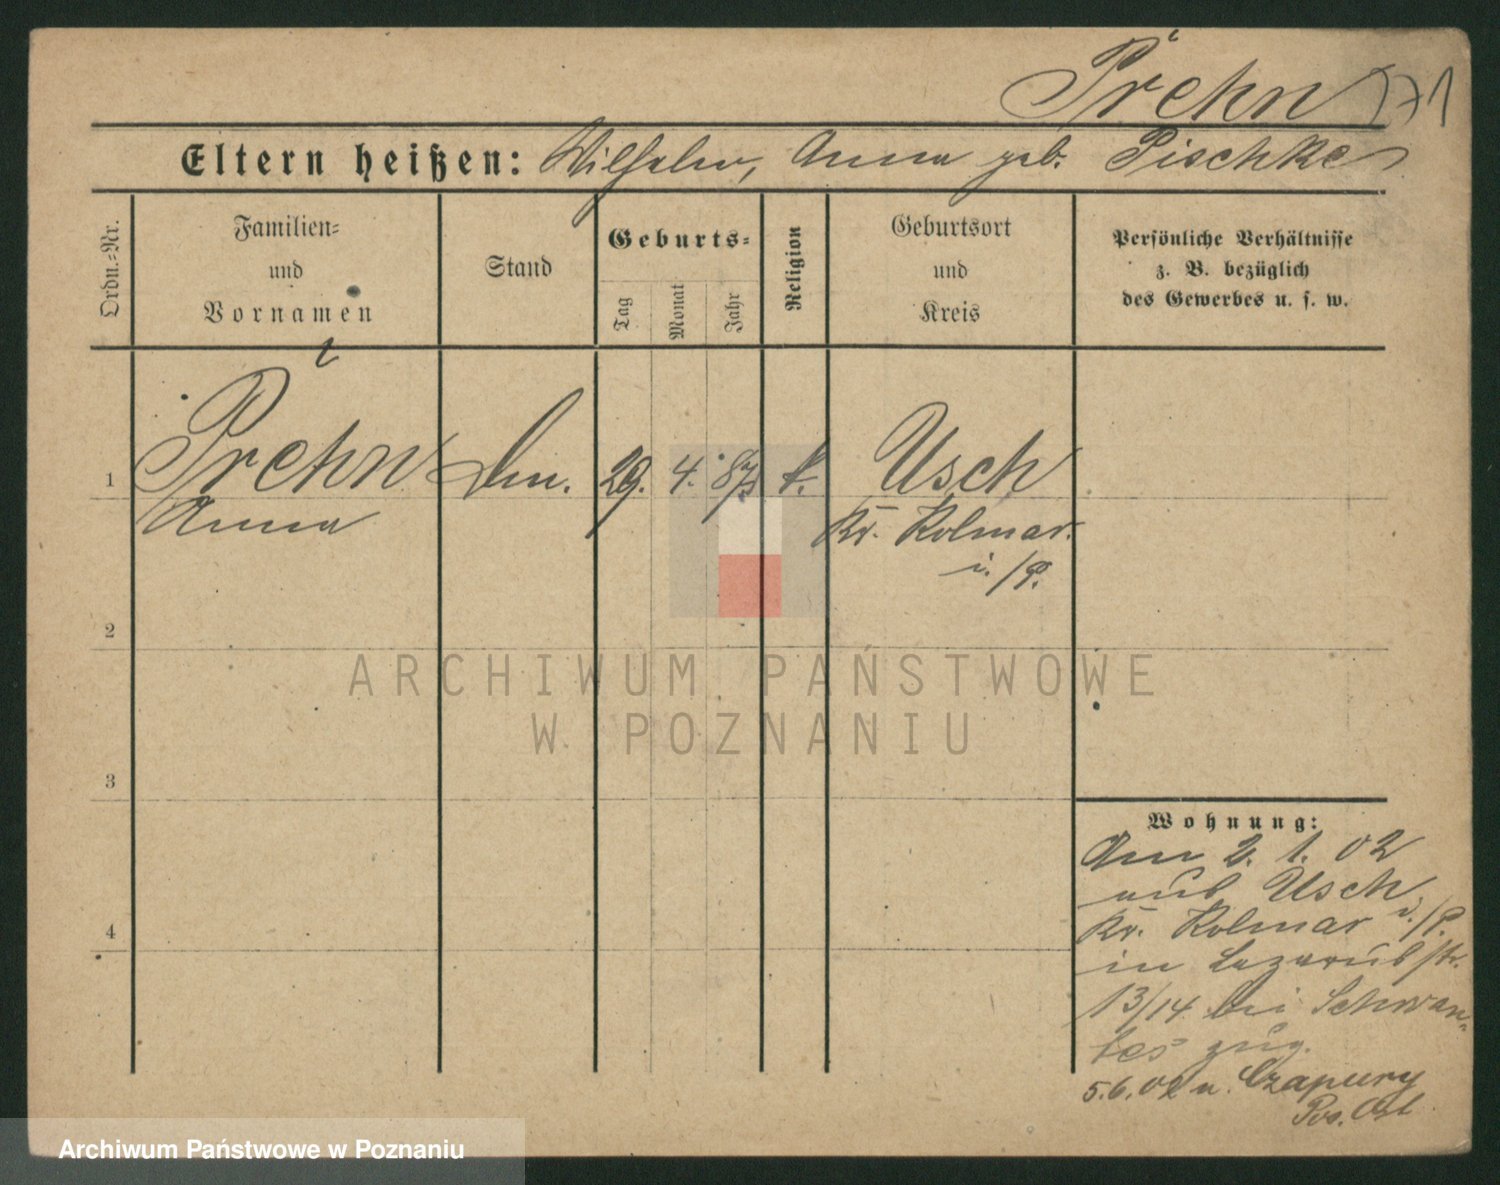 Prehn 71
Eltern heißen: Wilhelm, Anna geb. Pischke
Ordn.=Nr.
Familien=
und
Vornamen
Stand
Geburts=
Tag
Monat
Jahr
Religion
Geburtsort
und
Kreis
Persönliche Verhältnisse
z. B. bezüglich
des Gewerbes u. s. w.
1
Prehn 29. 4. 87 Usch
Anna Kr. Kolmar
i./P.
2
ARCHIWUM PAŃSTWOWE
W POZNANIU
3
Wohnung:
Am 2. 1. 02
aus Usch
Kr. Kolmar i./P.
4
in Lazarusstr.
13/14 bei Schwan-
tes zug.
5.6.02 n. Czapury
Pos. Ost
Archiwum Państwowe w Poznaniu